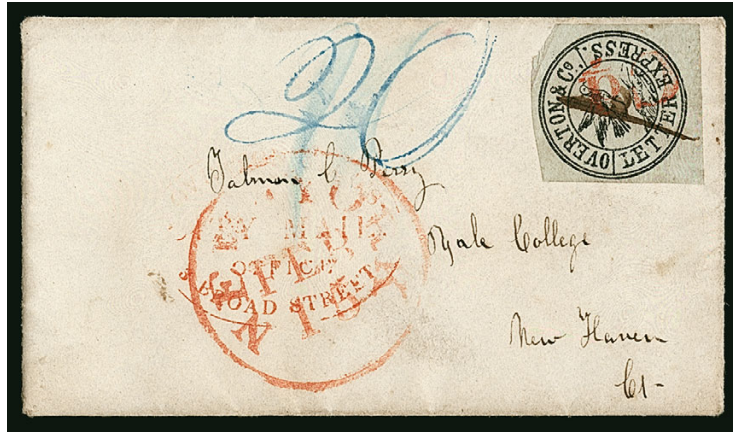 OVERTON & Co.
LETTER EXPRESS.
20
Talmon C Perry
Yale College
New Haven
Ct-
MAIL
OFFICE
BROAD STREET